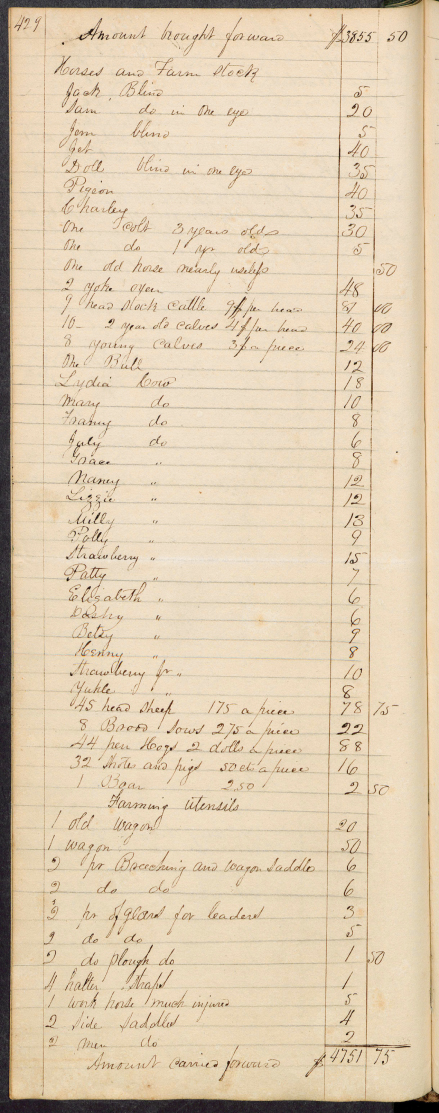 429
Amount brought forward $3855 50
Horses and Farm Stock
Jack Blind 5
Sam do in one eye 20
Jem blind 5
Jet 40
Doll blind in one eye 35
Pigeon 40
Charley 35
One colt 3 years old 30
One do 1 yr old 5
One old horse nearly useless 50
2 yoke oxen 48
9 head stock cattle 9$ per head 81 00
10 - 2 year old calves 4$ per head 40 00
8 young calves 3$ a piece 24 00
One Bull 12
Lydia Cow 18
Mary do 10
Fanny do 8
July do 6
Grace " 8
Nancy " 12
Lizzie " 12
Milly " 13
Polly " 9
Strawberry " 15
Patty " 7
Elizabeth " 6
" 6
Betsy " 9
Henny " 8
Strawberry jr " 10
" 8
45 head sheep 175 a piece 78 75
8 Brood Sows 275 a piece 22
44 pen Hogs 2 dolls a piece 88
32 Shots and pigs 50 cts a piece 16
1 Boar 2.50 2 50
Farming utensils
1 old wagon 20
1 wagon 50
2 pr Breeching and wagon Saddle 6
2 do do 6
2 pr of gears for leaders 3
2 do do 5
2 do plough do 1 50
4 halter straps 1
1 work horse much injured 5
2 Side Saddles 4
2 men do 2
Amount carried forward $4751 75